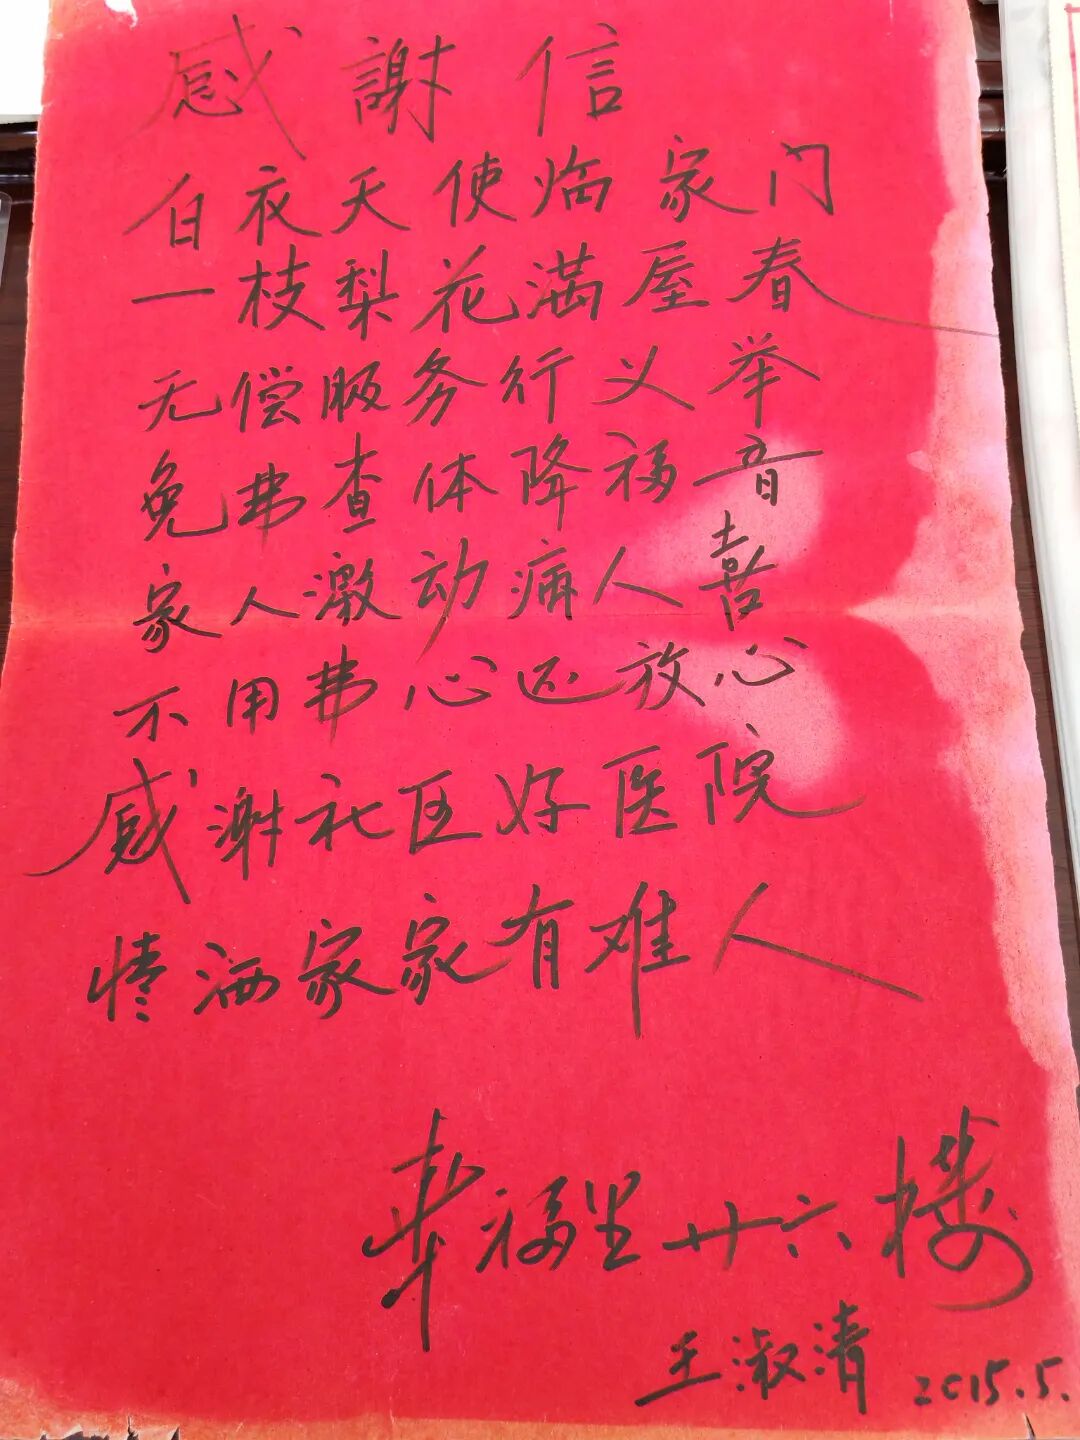 感謝信
白衣天使临家门
一枝梨花满屋春
无偿服务行义举
免费查体降福音
家人激动病人喜
不用费心还放心
感谢社区好医院
情洒家家有难人
幸福里廿六楼
王淑清 2015.5.